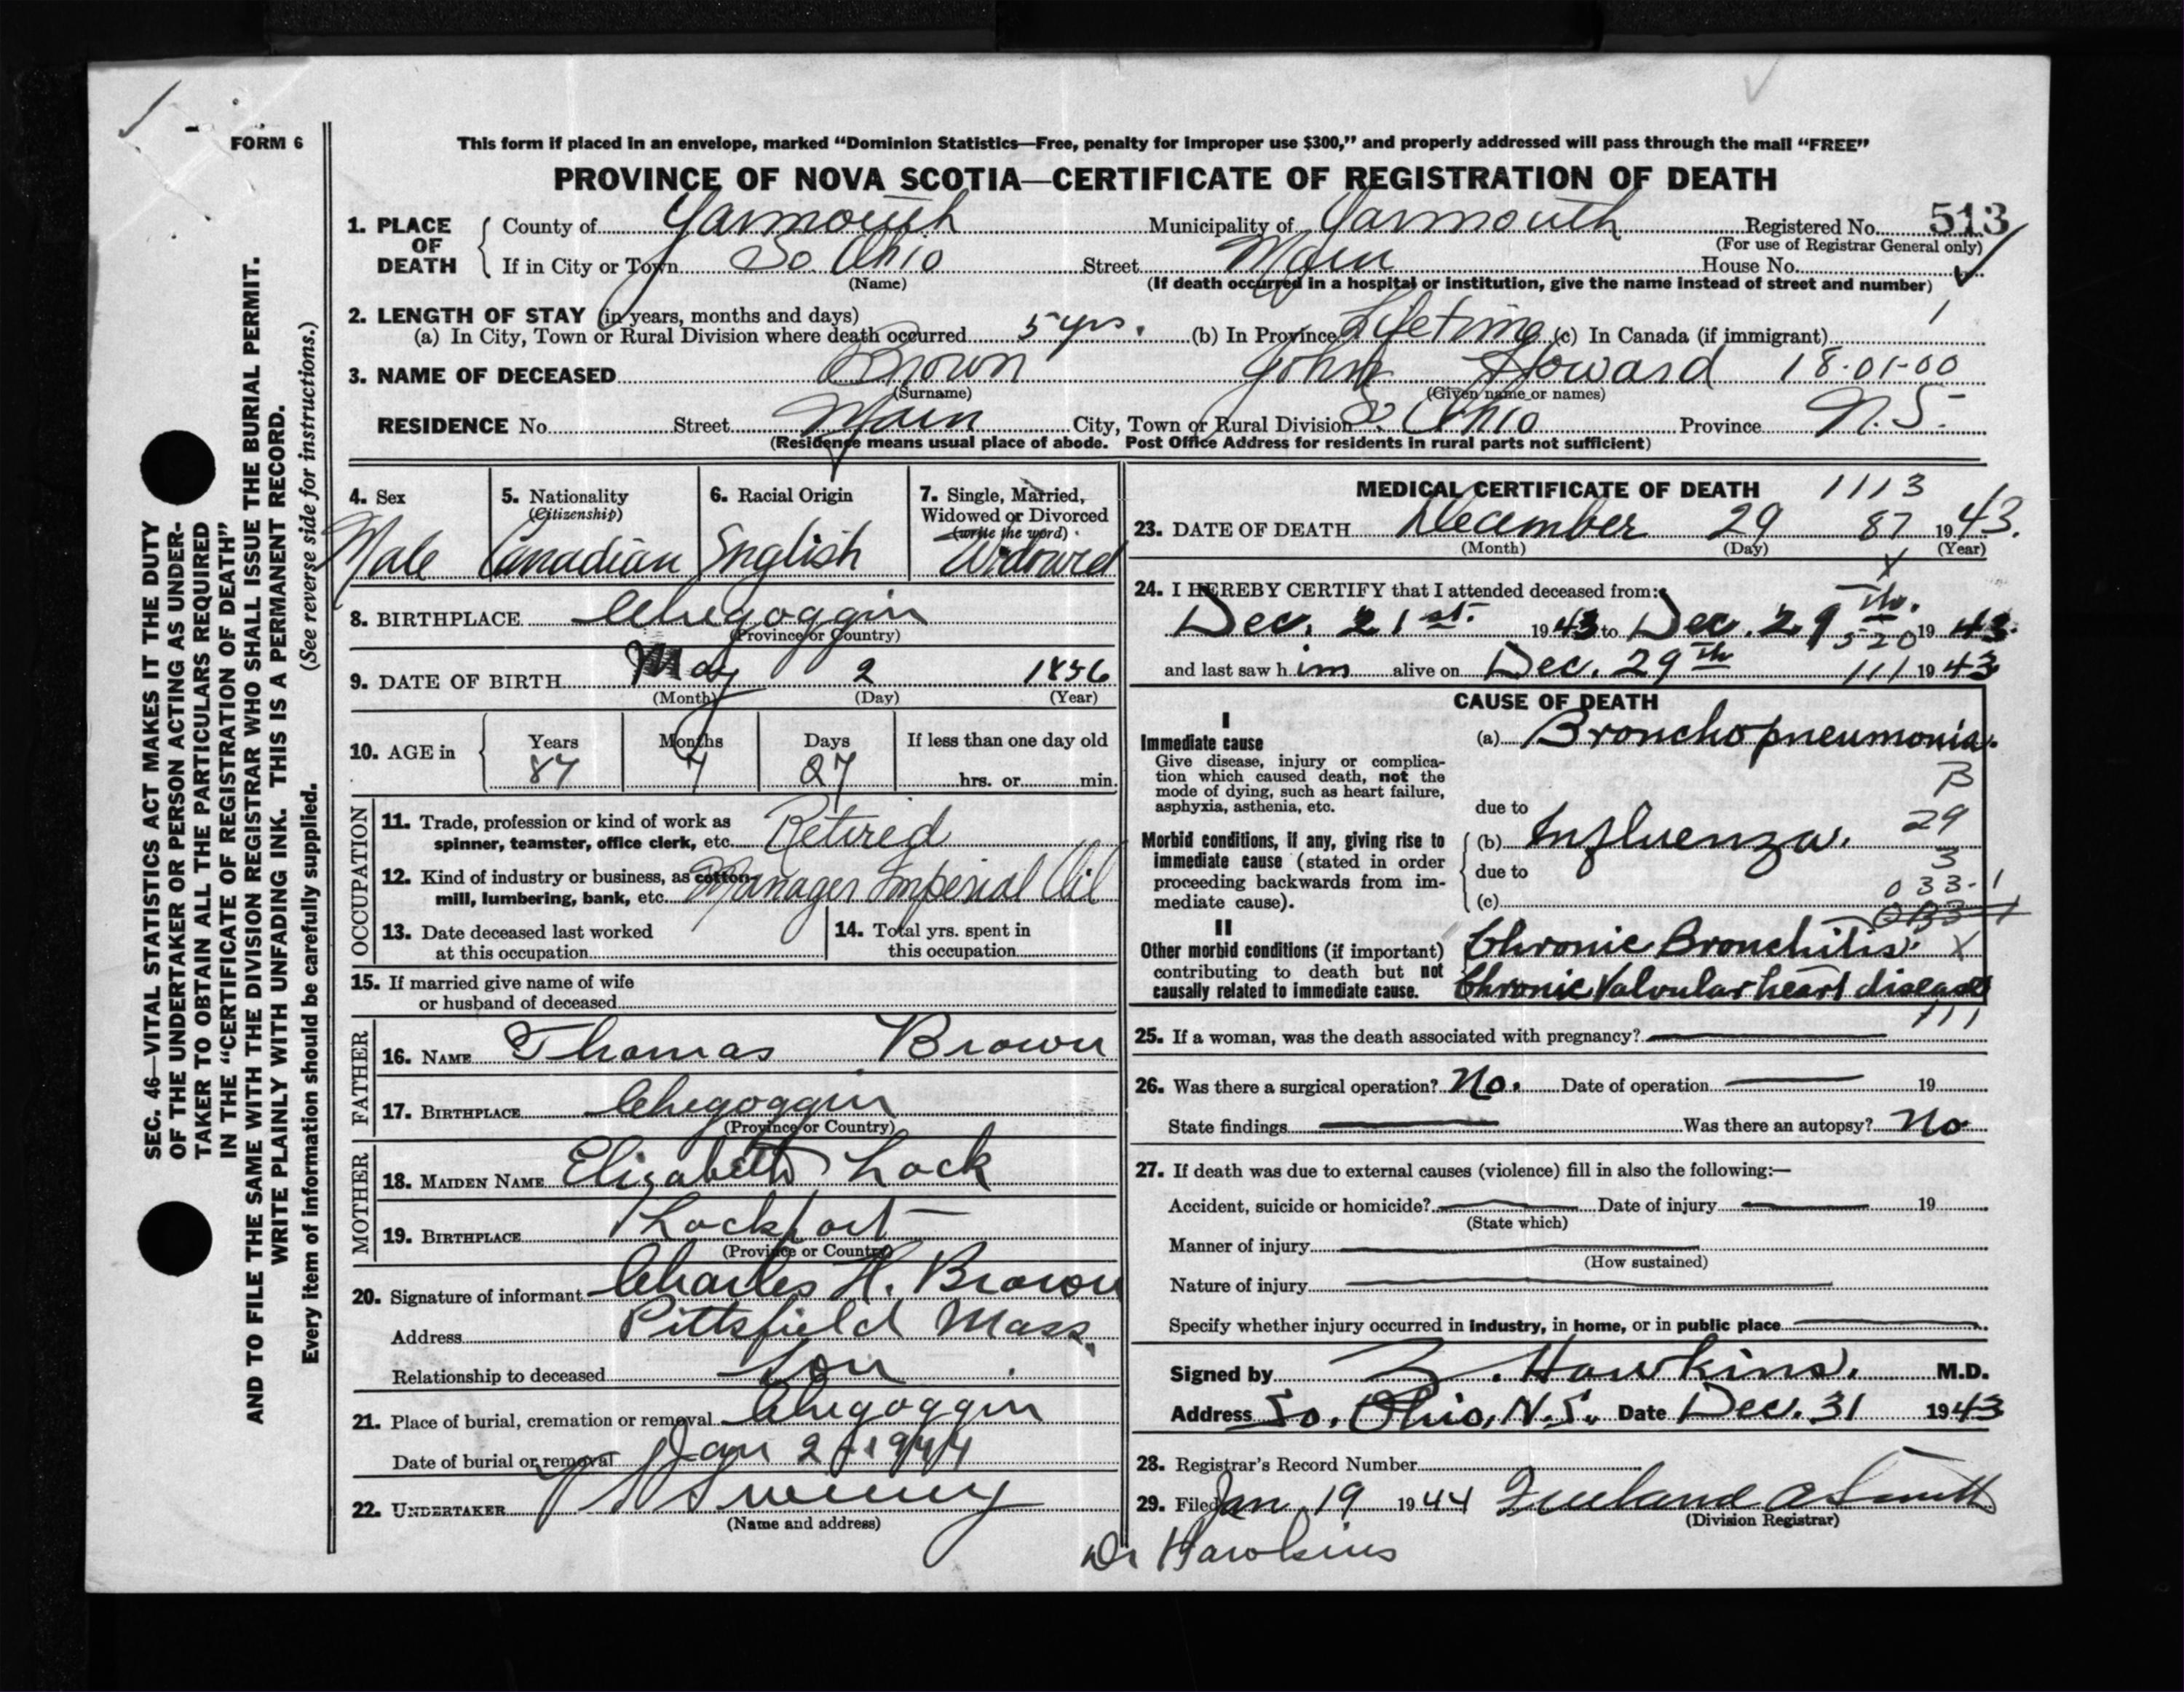 FORM 6
This form if placed in an envelope, marked "Dominion Statistics—Free, penalty for improper use $300," and properly addressed will pass through the mail "FREE"
PROVINCE OF NOVA SCOTIA—CERTIFICATE OF REGISTRATION OF DEATH
1. PLACE OF DEATH County of Yarmouth Municipality of Yarmouth Registered No. 513
(For use of Registrar General only)
If in City or Town So. Ohio Street Main House No.
(Name) (If death occurred in a hospital or institution, give the name instead of street and number)
2. LENGTH OF STAY (in years, months and days)
(a) In City, Town or Rural Division where death occurred 5 yrs. (b) In Province Lifetime (c) In Canada (if immigrant)
3. NAME OF DECEASED Brown John Howard 18-01-00
(Surname) (Given name or names)
RESIDENCE No. Street Main City, Town or Rural Division So. Ohio Province N.S.
(Residence means usual place of abode. Post Office Address for residents in rural parts not sufficient)
4. Sex
Male
5. Nationality
(Citizenship)
Canadian
6. Racial Origin
English
7. Single, Married,
Widowed or Divorced
(write the word)
Widowed
8. BIRTHPLACE Chegoggin
(Province or Country)
9. DATE OF BIRTH May 2 1856
(Month) (Day) (Year)
10. AGE in Years Months Days If less than one day old
87 7 27 hrs. or min.
OCCUPATION
11. Trade, profession or kind of work as
spinner, teamster, office clerk, etc. Retired
12. Kind of industry or business, as cotton-
mill, lumbering, bank, etc. Manager Imperial Oil
13. Date deceased last worked
at this occupation
14. Total yrs. spent in
this occupation
15. If married give name of wife
or husband of deceased
FATHER
16. NAME Thomas Brown
17. BIRTHPLACE Chegoggin
(Province or Country)
MOTHER
18. MAIDEN NAME Elizabeth Lock
19. BIRTHPLACE Lockport
(Province or Country)
20. Signature of informant Charles H. Brown
Address Pittsfield Mass.
Relationship to deceased Son
21. Place of burial, cremation or removal Chegoggin
Date of burial or removal Jan 2 - 1944
22. UNDERTAKER Sweeny
(Name and address)
MEDICAL CERTIFICATE OF DEATH 1113
23. DATE OF DEATH December 29 87 1943.
(Month) (Day) (Year)
X
24. I HEREBY CERTIFY that I attended deceased from:
Dec. 21st. 1943 to Dec. 29th. 1943.
520
and last saw him alive on Dec. 29th 111 1943
CAUSE OF DEATH
I
Immediate cause
Give disease, injury or complica-
tion which caused death, not the
mode of dying, such as heart failure,
asphyxia, asthenia, etc.
(a) Bronchopneumonia.
B
due to
29
Morbid conditions, if any, giving rise to
immediate cause (stated in order
proceeding backwards from im-
mediate cause).
(b) Influenza.
3
due to
033-1
(c)
II
Other morbid conditions (if important)
contributing to death but not
causally related to immediate cause.
Chronic Bronchitis. X
Chronic Valvular heart disease
111
25. If a woman, was the death associated with pregnancy?
26. Was there a surgical operation? No. Date of operation 19
State findings Was there an autopsy? No
27. If death was due to external causes (violence) fill in also the following:—
Accident, suicide or homicide? Date of injury 19
(State which)
Manner of injury
(How sustained)
Nature of injury
Specify whether injury occurred in industry, in home, or in public place
Signed by Z. Hawkins. M.D.
Address So. Ohio, N.S. Date Dec. 31 1943
28. Registrar's Record Number
29. Filed Jan. 19 1944 Freeland A Smith
(Division Registrar)
Dr Hawkins
SEC. 46—VITAL STATISTICS ACT MAKES IT THE DUTY
OF THE UNDERTAKER OR PERSON ACTING AS UNDER-
TAKER TO OBTAIN ALL THE PARTICULARS REQUIRED
IN THE "CERTIFICATE OF REGISTRATION OF DEATH"
AND TO FILE THE SAME WITH THE DIVISION REGISTRAR WHO SHALL ISSUE THE BURIAL PERMIT.
WRITE PLAINLY WITH UNFADING INK. THIS IS A PERMANENT RECORD.
Every item of information should be carefully supplied. (See reverse side for instructions.)